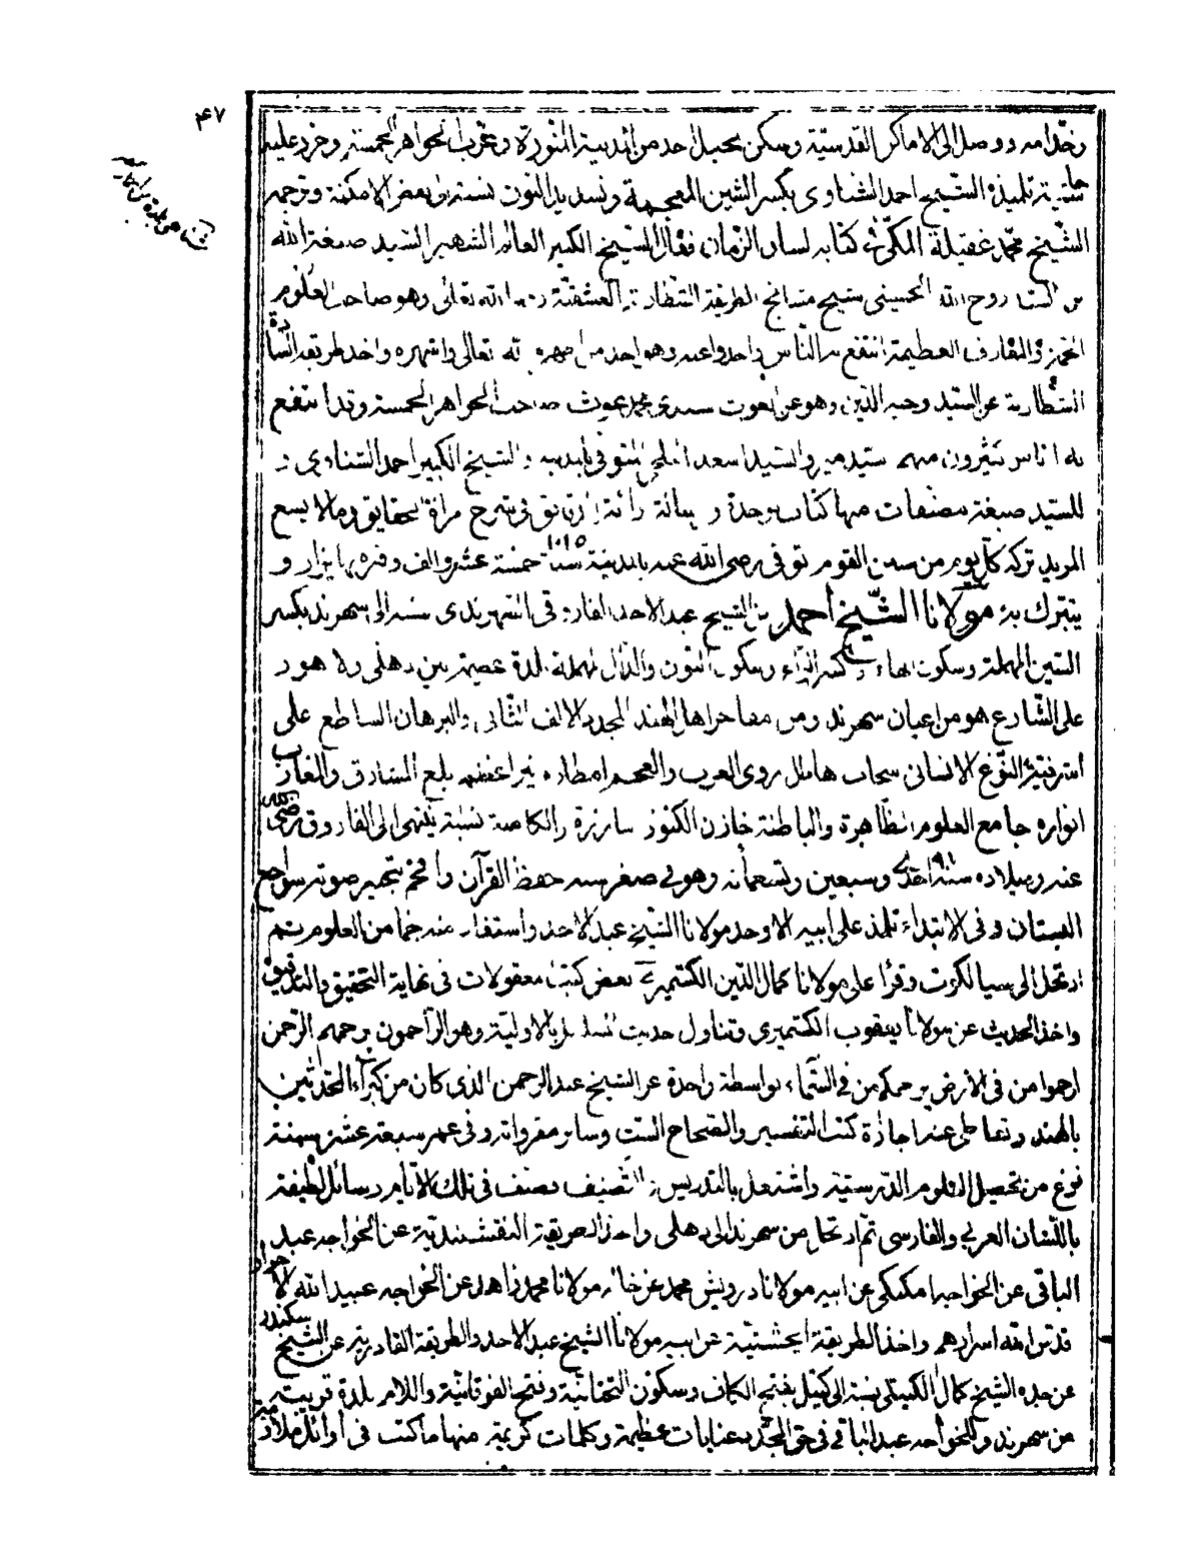 ۴۷
وخدامه ووصل الى الاماكن القدسيّة وسكن بجبل احد من المدينة المنّورة وعرّب الجواهر الخمسة وحرّر عليه
حاشية تلميذه الشّيخ احمد الشناوى بكسر الشين المعجمة وتشديد النون نسبة الى بعض الامكنة وترجمه
الشّيخ محمّد عقيلة المكّى فى كتابه لسان الزمان فقال الشيخ الكبير العالم الشهير السّيد صبغة الله
بن السيد روح الله الحسينى شيخ مشايخ الطريقة الشطارية العشقيّة رحمه الله تعالى وهو صاحب العلوم
والمعارف العظيمة انتفع به النّاس واخذوا عنه وهو احد من اظهره الله تعالى واشهره واخذ طريقه السّادة
الشطارية عن السّيد وجيه الدّين وهو عن الغوث سيدى محمد غوث صاحب الجواهر الخمسة وقد انتفع
به اناس كثيرون منهم سيّد مير والسّيد اسعد البلخى المتوفى بالمدينة والشيخ الكبير احمد الشناوى و
للسّيد صبغة مصنفات منها كتاب وحدة ورسالة رائة الرقائق فى شرح مرآة الحقايق وما لا يسع
المريد تركه كل يوم من سنن القوم توفى رضى الله عنه بالمدينة سنة ١٠١٥ خمسة عشر والف وقبره بها يزار و
يتبرك به مولانا الشّيخ احمد بن الشيخ عبد الاحد الفاروقى السّهرندى نسبة الى سهرند بكسر
السّين المهملة وسكون الهاء وكسر الرّاء وسكون النون والدّال المهملة بلدة عظيمة بين دهلى ولاهور
على الشّارع هو من اعيان سهرند ومن مفاخر اهل الهند المجدد الالف الثّانى والبرهان الساطع على
اشرفيّة النّوع الانسانى سحاب هاطل روى العرب والعجم امطاره نير اعظم بلغ المشارق والمغارب
انواره جامع العلوم الظّاهرة والباطنة خازن الكنوز البارزة والكامنة نسبة ينتهى الى الفاروق رضى الله
عنه وميلاده سنة ٩٧١ احدى وسبعين وتسعمائة وهو فى صغر سنه حفظ القرآن وافحم بتجبير صوته سواجع
البستان وفى الابتداء تلمذ على ابيه الاوحد مولانا الشيخ عبد الاحد واستفاد منه جما من العلوم ثم
ارتحل الى سيالكوت وقرأ على مولانا كمال الدّين الكشميرى بعض كتب المعقولات فى نهاية التحقيق والتدقيق
واخذ الحديث عن مولانا يعقوب الكشميرى وتناول حديث المسلسل بالاولية وهو الرّاحمون يرحمهم الرّحمن
ارحموا من فى الارض يرحمكم من فى السّماء بواسطة واحدة عن الشيخ عبد الرحمن الذى كان من كبراء المحدّثين
بالهند وتعاطى عنه اجازة كتب التفسير والصحاح الستّ وساير مقرواته وفى عمر سبعة عشر سنة
فرغ من تحصيل العلوم الدّرسيّة واشتغل بالتدريس والتّصنيف وصنف فى تلك الايّام رسائل لطيفة
باللّسان العربى والفارسى ثمّ ارتحل من سهرند الى دهلى واخذ الطريقة النقشبندية عن الخواجه عبد
الباقى عن الخواجه امكنكى عن ابيه مولانا درويش محمد عن خاله مولانا محمد زاهد عن الخواجه عبيد الله الاحرار
قدّس الله اسرارهم واخذ الطريقة الچشتيّة عن ابيه مولانا الشيخ عبد الاحد والطريقة القادرية عن الشيخ سكندر
عن جده الشيخ كمال الكيتلى نسبة الى كيتل بفتح الكاف وسكون التحتانيّة وفتح الفوقانيّة واللام بلدة قريبة
من سهرند وللخواجه عبد الباقى فى حق المجدّد عنايات عظيمة وكلمات كريمة منها ما كتب فى اوائل ملازمته